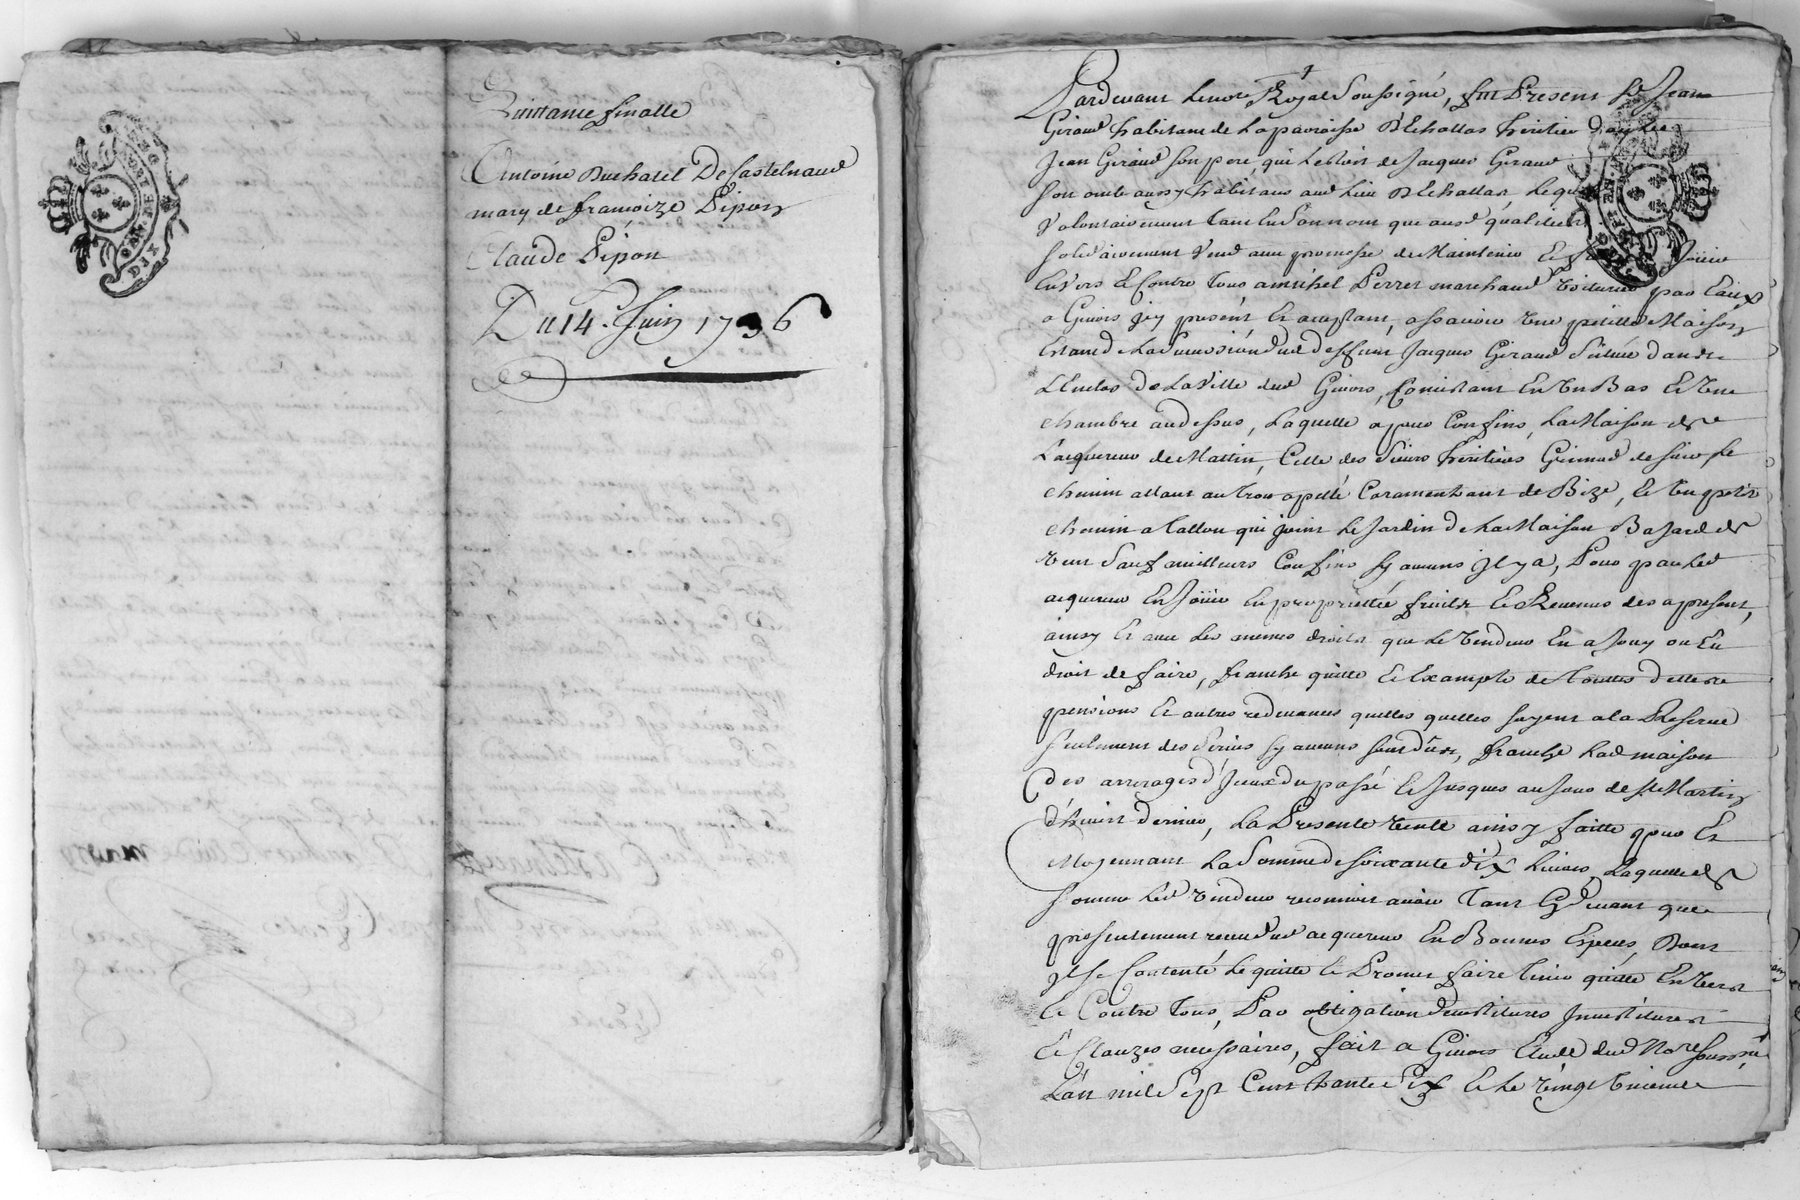 Quittance finalle
Antoine Duchatel De Castelnaud
mary de francoize Pipon
Claude Pipon
Du 14. Juin 1736
Pardevant Lenore Royal Soussigné, fut Present Sr Jean
Giraud habitant de La paroisse D'Echallas heritier
Jean Giraud son pere, qui Lestoit de Jacques Giraud
son oncle aussy habitant aud Lieu D'Echallas Lequ
Volontairement tant En Son nom que ausd qualités
Solidairement Vend avec promesse de Maintenir Et
Envers Et Contre Tous a michel Perret marchand Voiturier par Eaux
a Givors jcy present Et acceptant, assavoir Une petitte Maison
Estant de La Succession dud deffunt Jacques Giraud Scituée dans
L'Enclos De La Ville dud Givors, Consistant En Un Bas Et Une
chambre au dessus, Laquelle a pour Confins, La Maison de
L'acquereur de Mattin, Celle des Sieurs heritiers Grimod de soir Le
chemin allant au Trou apellé de Bize, Et Un petit
chemin a Tallon qui joint Le Jardin de La Maison
Vent Sauf meilleurs Confins sy aucuns Jl y a, Pour par Led
acquereur En Jouir En proprietté fruits Et Revenus des a present,
ainsy Et avec Les memes droits que Le Vendeur En a Jouy ou Eu
droit de faire, franche quitte Et Exampte de touttes dettes
pensions Et autres redevances quelles quelles soyent a la Reserve
seulement des Servis sy aucuns sont dûs, franche Lad maison
des arrerages d'jceux du passé Et Jusques au Jour de St Martin
d'hiver Dernier, La Presente Vente ainsy faitte pour Et
Moyennant La Somme de soixante dix Livres, Laquelle
somme Led Vendeur reconnoit avoir Tant Cy devant que
presentement receu dud acquereur En Bonnes Especes, Dont
jl se Contente Le quitte Et Promet faire Tenir quitte Envers
Et Contre Tous, Par obligation Devestitures Jnvestitures
Et Clauzes necessaires, fait a Givors Etude dud Nore soussné
L'an mil Sept Cent trante Six Et Le Vingt